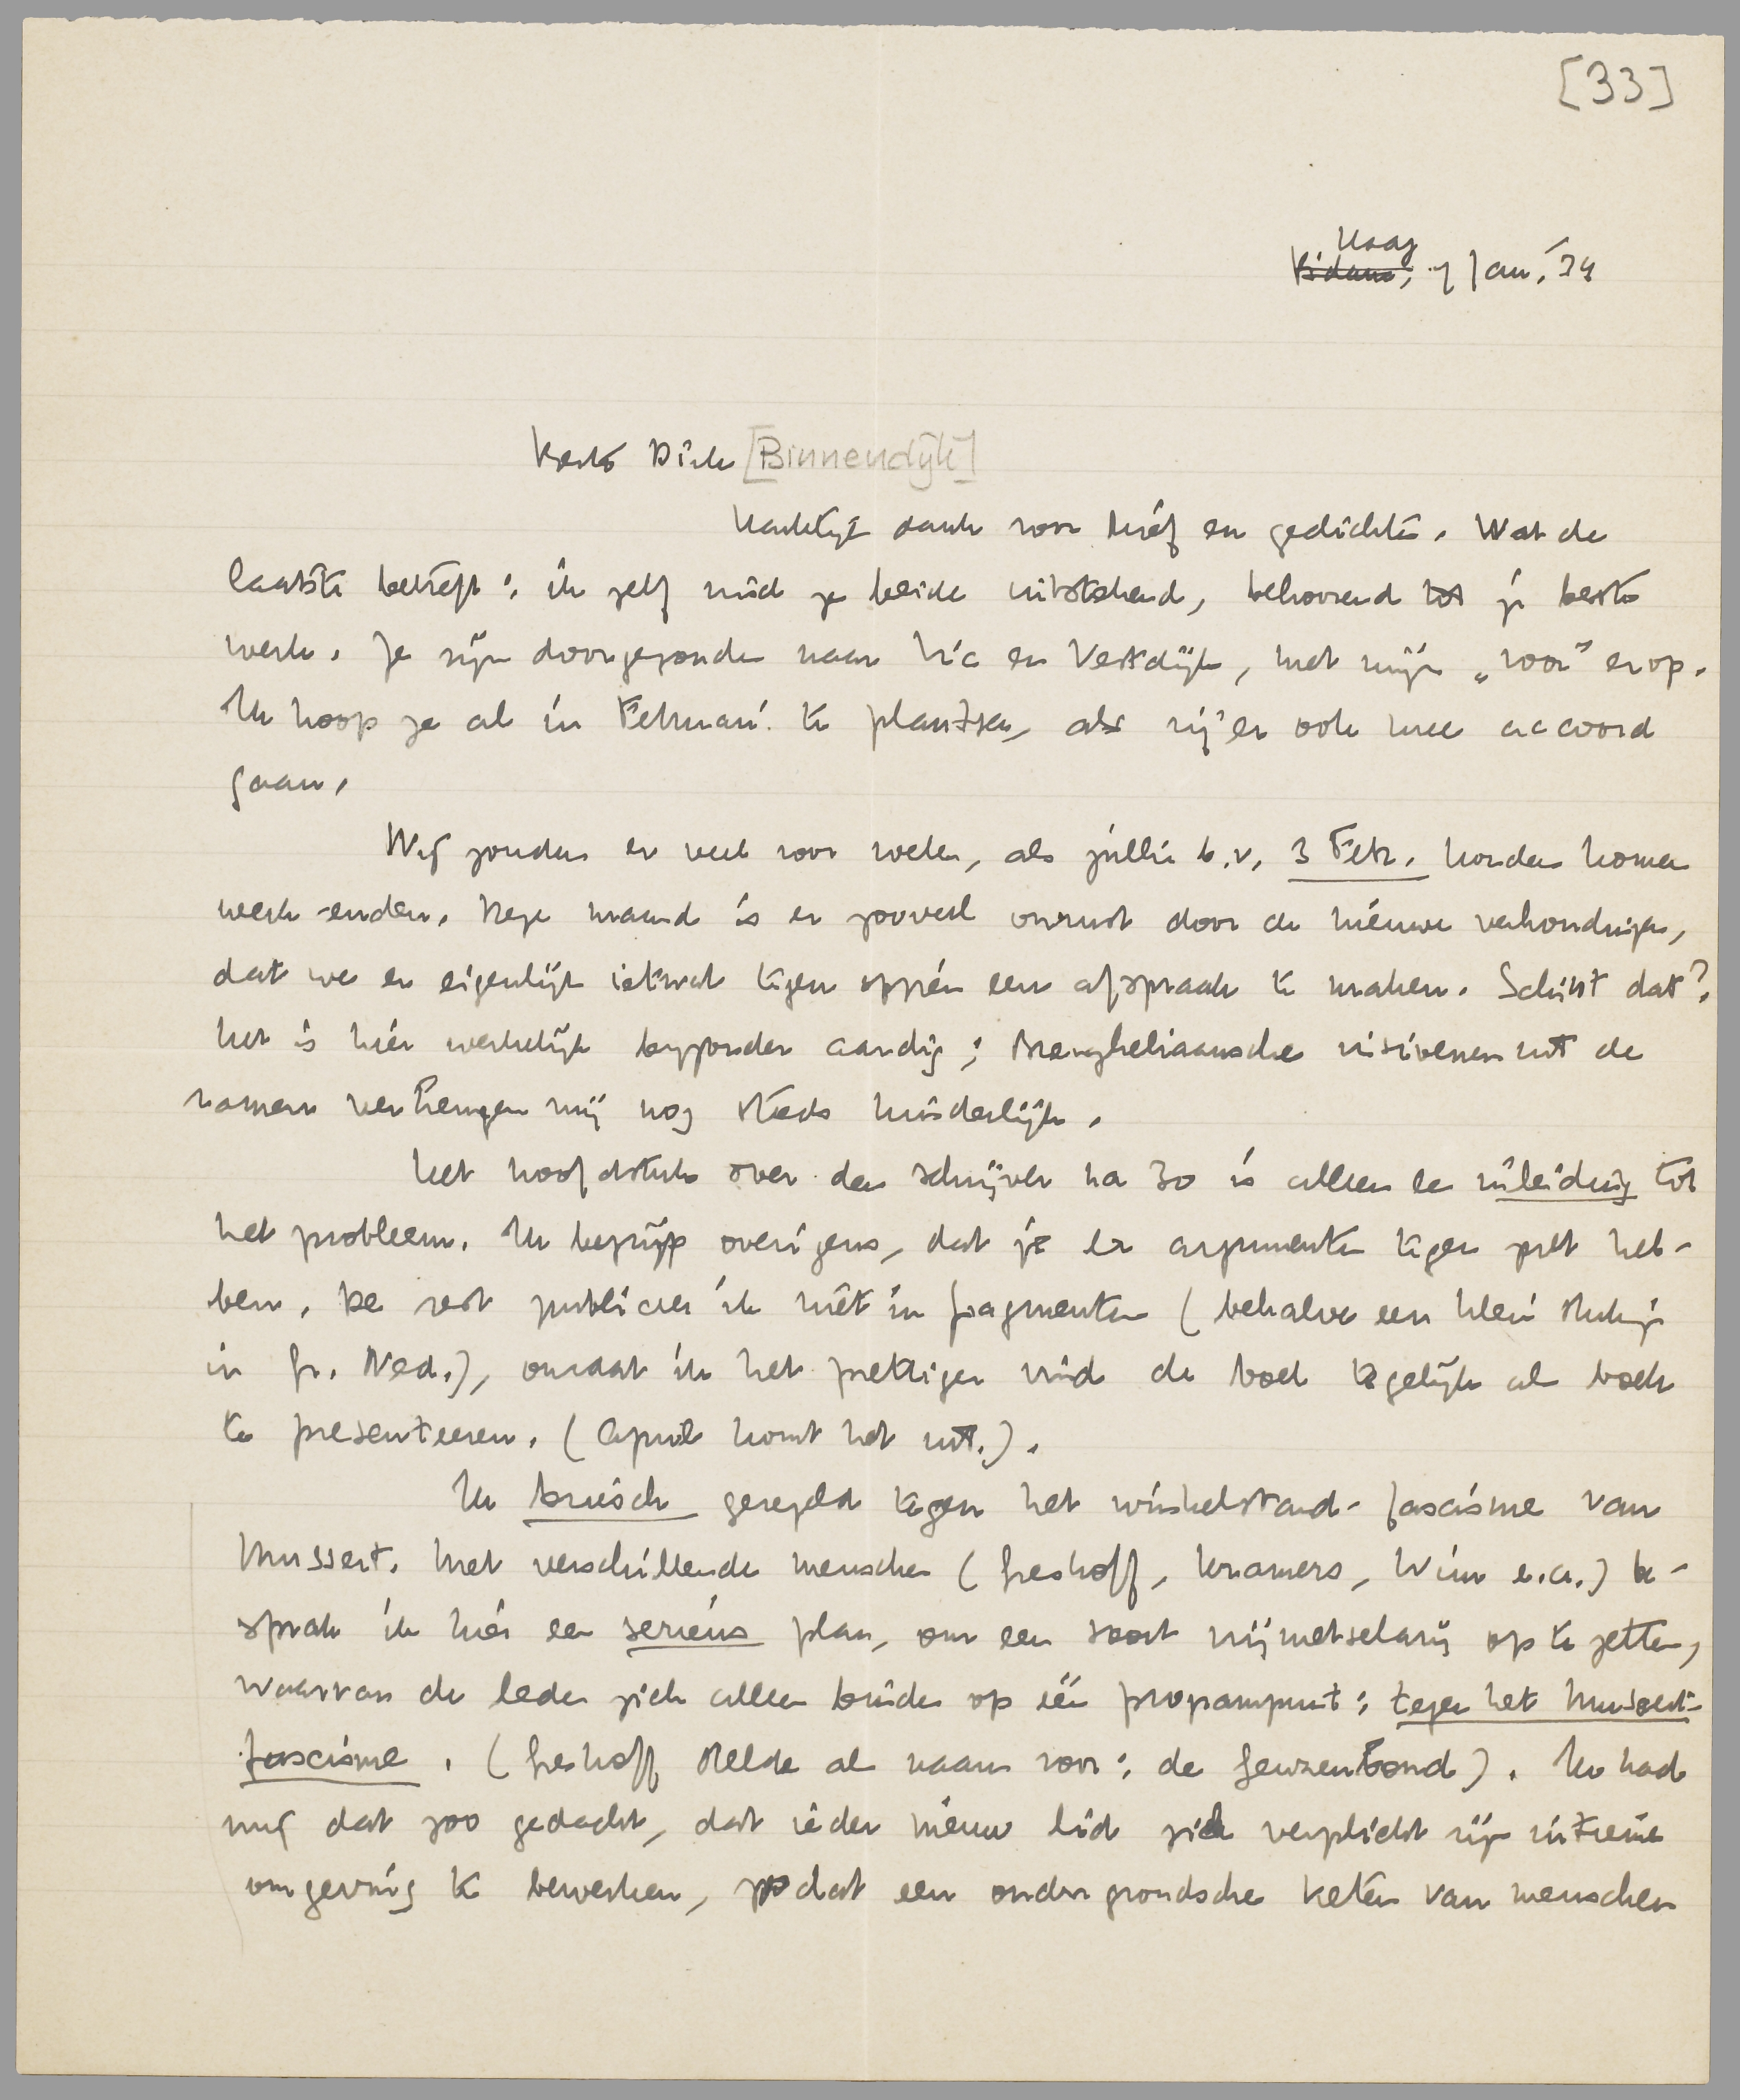 [33]
Haag
R'dam, 7 Jan. '34
Beste Dick [Binnendijk]
Hartelijk dank voor brief en gedichten. Wat de
laatste betreft: ik zelf vind ze beide uitstekend, behoorend tot je beste
werk. Ze zijn doorgezonden naar Vic en Vestdijk, met mijn „voor” erop.
Ik hoop ze al in Februari te plaatsen, als zij er ook mee accoord
gaan.
Wij zouden er veel voor voelen, als jullie b.v. 3 Febr. konden komen
week-enden. Deze maand is er zooveel onrust door de nieuwe verhoudingen,
dat we er eigenlijk ietwat tegen opzien een afspraak te maken. Schikt dat?
Het is hier werkelijk byzonder aardig; Breugheliaansche visioenen uit de
ramen verheugen mij nog steeds kinderlijk.
Het hoofdstuk over den schrijver na 30 is alleen een inleiding tot
het probleem. Ik begrijp overigens, dat je er argumenten tegen zult heb-
ben. De rest publiceer ik niet in fragmenten (behalve een klein stukje
in Gr. Ned.), omdat ik het prettiger vind de boel tegelijk als boek
te presenteeren. (April komt het uit.).
Ik bruisch geregeld tegen het winkelstand-fascisme van
Mussert. Met verschillende menschen (Greshoff, Kramers, Wim e.a.) be-
sprak ik hier een serieus plan, om een soort vrijmetselarij op te zetten,
waarvan de leden zich alleen binden op één programpunt: tegen het Mussert-
fascisme. (Greshoff stelde als naam voor: de Geuzenbond). Ik had
mij dat zoo gedacht, dat ieder nieuw lid zich verplicht zijn intieme
omgeving te bewerken, zoodat een ondergrondsche keten van menschen